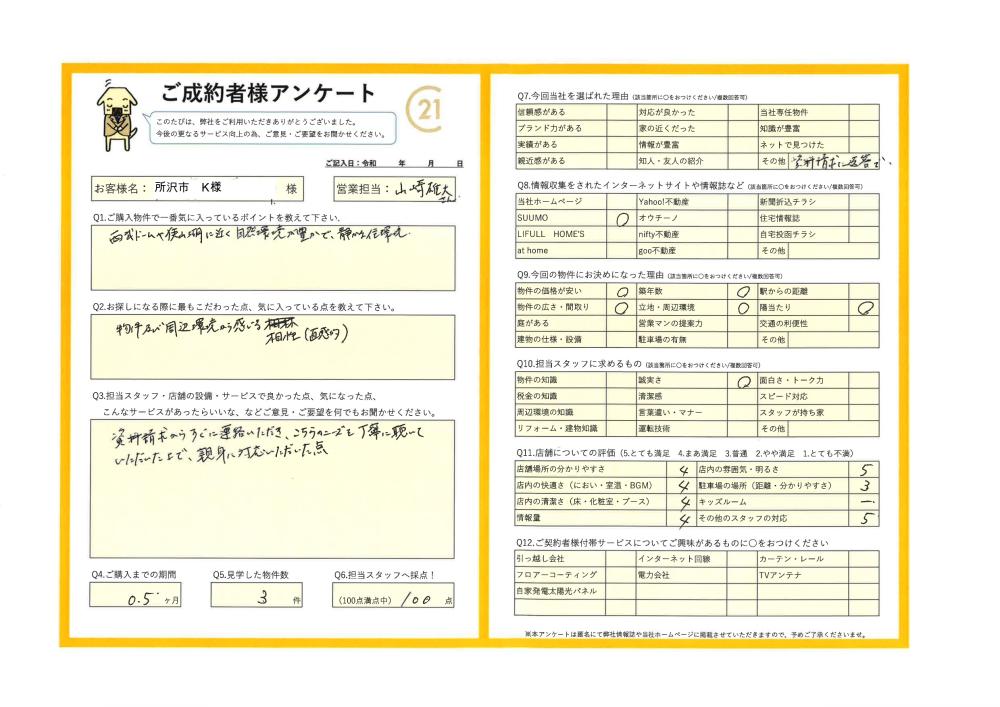 ご成約者様アンケート
21
このたびは、弊社をご利用いただきありがとうございました。
今後の更なるサービス向上の為、ご意見・ご要望をお聞かせください。
ご記入日：令和　年　月　日
お客様名： 所沢市　K様　様
営業担当： 山﨑雄大さん
Q1.ご購入物件で一番気に入っているポイントを教えて下さい.
西武ドームや狭山湖に近く自然環境が豊かで、静かな住環境.
Q2.お探しになる際に最もこだわった点、気に入っている点を教えて下さい。
物件及び周辺環境から感じる
相性(直感的)
Q3.担当スタッフ・店舗の設備・サービスで良かった点、気になった点、
こんなサービスがあったらいいな、などご意見・ご要望を何でもお聞かせください。
資料請求からすぐに連絡いただき、こちらのニーズを丁寧に聴いて
いただいた上で、親身に対応いただいた点
Q4.ご購入までの期間
0.5 ヶ月
Q5.見学した物件数
3 件
Q6.担当スタッフへ採点！
(100点満点中) 100 点
Q7.今回当社を選ばれた理由 (該当箇所に〇をおつけください/複数回答可)
信頼感がある　対応が良かった　当社専任物件
ブランド力がある　家の近くだった　知識が豊富
実績がある　情報が豊富　ネットで見つけた
親近感がある　知人・友人の紹介　その他 資料請求に返答で.
Q8.情報収集をされたインターネットサイトや情報誌など (該当箇所に〇をおつけください/複数回答可)
当社ホームページ　Yahoo!不動産　新聞折込チラシ
SUUMO 〇　オウチーノ　住宅情報誌
LIFULL HOME'S　nifty不動産　自宅投函チラシ
at home　goo不動産　その他
Q9.今回の物件にお決めになった理由 (該当箇所に〇をおつけください/複数回答可)
物件の価格が安い 〇　築年数 〇　駅からの距離
物件の広さ・間取り 〇　立地・周辺環境 〇　陽当たり 〇
庭がある　営業マンの提案力　交通の利便性
建物の仕様・設備　駐車場の有無　その他
Q10.担当スタッフに求めるもの (該当箇所に〇をおつけください/複数回答可)
物件の知識　誠実さ 〇　面白さ・トーク力
税金の知識　清潔感　スピード対応
周辺環境の知識　言葉遣い・マナー　スタッフが持ち家
リフォーム・建物知識　運転技術　その他
Q11.店舗についての評価 (5.とても満足　4.まあ満足　3.普通　2.やや満足　1.とても不満)
店舗場所の分かりやすさ 4　店内の雰囲気・明るさ 5
店内の快適さ（におい・室温・BGM） 4　駐車場の場所（距離・分かりやすさ） 3
店内の清潔さ（床・化粧室・ブース） 4　キッズルーム ー
情報量 4　その他のスタッフの対応 5
Q12.ご契約者様付帯サービスについてご興味があるものに〇をおつけください
引っ越し会社　インターネット回線　カーテン・レール
フロアーコーティング　電力会社　TVアンテナ
自家発電太陽光パネル
※本アンケートは匿名にて弊社情報誌や当社ホームページに掲載させていただきますので、予めご了承くださいませ。